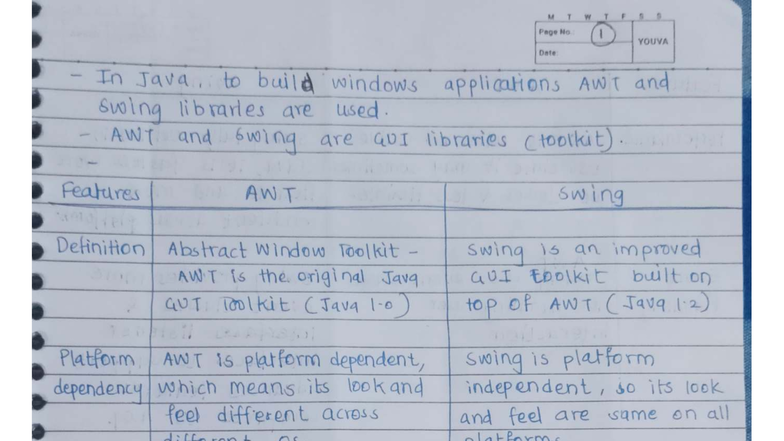 M T W T F S S
Page No. 1
YOUVA
Date:
- In Java, to build windows applications AWT and
swing libraries are used.
- AWT and swing are GUI libraries (toolkit).
-
Features AWT swing
Definition Abstract Window Toolkit - swing is an improved
AWT is the original Java GUI toolkit built on
GUI Toolkit (Java 1.0) top of AWT (Java 1.2)
Platform AWT is platform dependent, swing is platform
dependency which means its look and independent, so its look
feel different across and feel are same on all
different os platforms